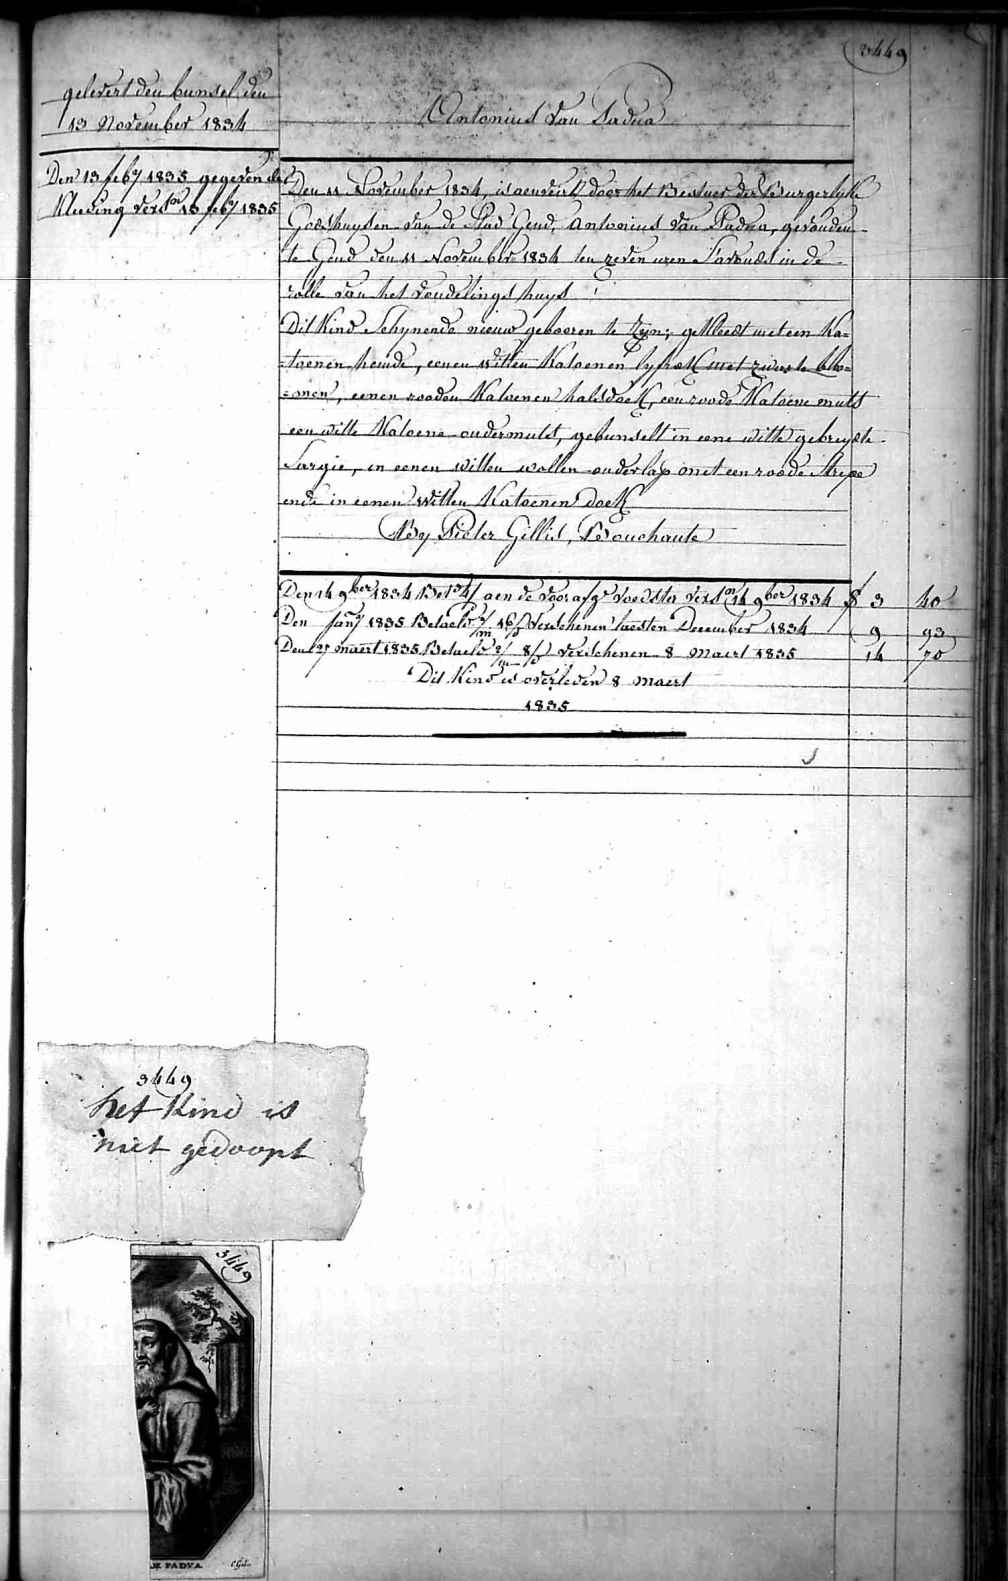 3449
gelevert den bunsel den
13 November 1834
Antonius van Padua
Den 13 feby 1835 gegeven de
Kleeding versn 13 feby 1835
Den 11 November 1834, is aenveirt door het Bestuer der Burgerlyke
Godshuysen van de Stad Gend, Antonius van Padua, gevonden
te Gend den 11 November 1834 ten zeven uren S'avonds in de
rolle van het vondelings huys
Dit Kind Schynende nieuw gebooren te zyn; gekleedt met een Ka=
=toenen hemde, eenen witten Katoenen lyfrok met zwarte blo=
=men, eenen rooden Katoenen halsdoek, een roode Katoene muts
een witte Katoene ondermuts, gebunselt in eene witte gebreyde
Sargie, in eenen witten wollen onderlap met een roode Strepe
ende in eenen witten Katoenen Doek
By Pieter Gillis, Desouchante
Den 14 9ber 1834 Bet 4/ aen de voorafge voedster versn 14 9ber 1834 f 3 40
Den Jany 1835 Betaeld 2/m 16/d Verschenen laesten December 1834 9 93
Den 27 maert 1835 Betaeld 2/m 8/d verschenen 8 maert 1835 14 70
Dit Kind is overleden 8 maert
1835
3449
het Kind is
niet gedoopt
3449
PADVA